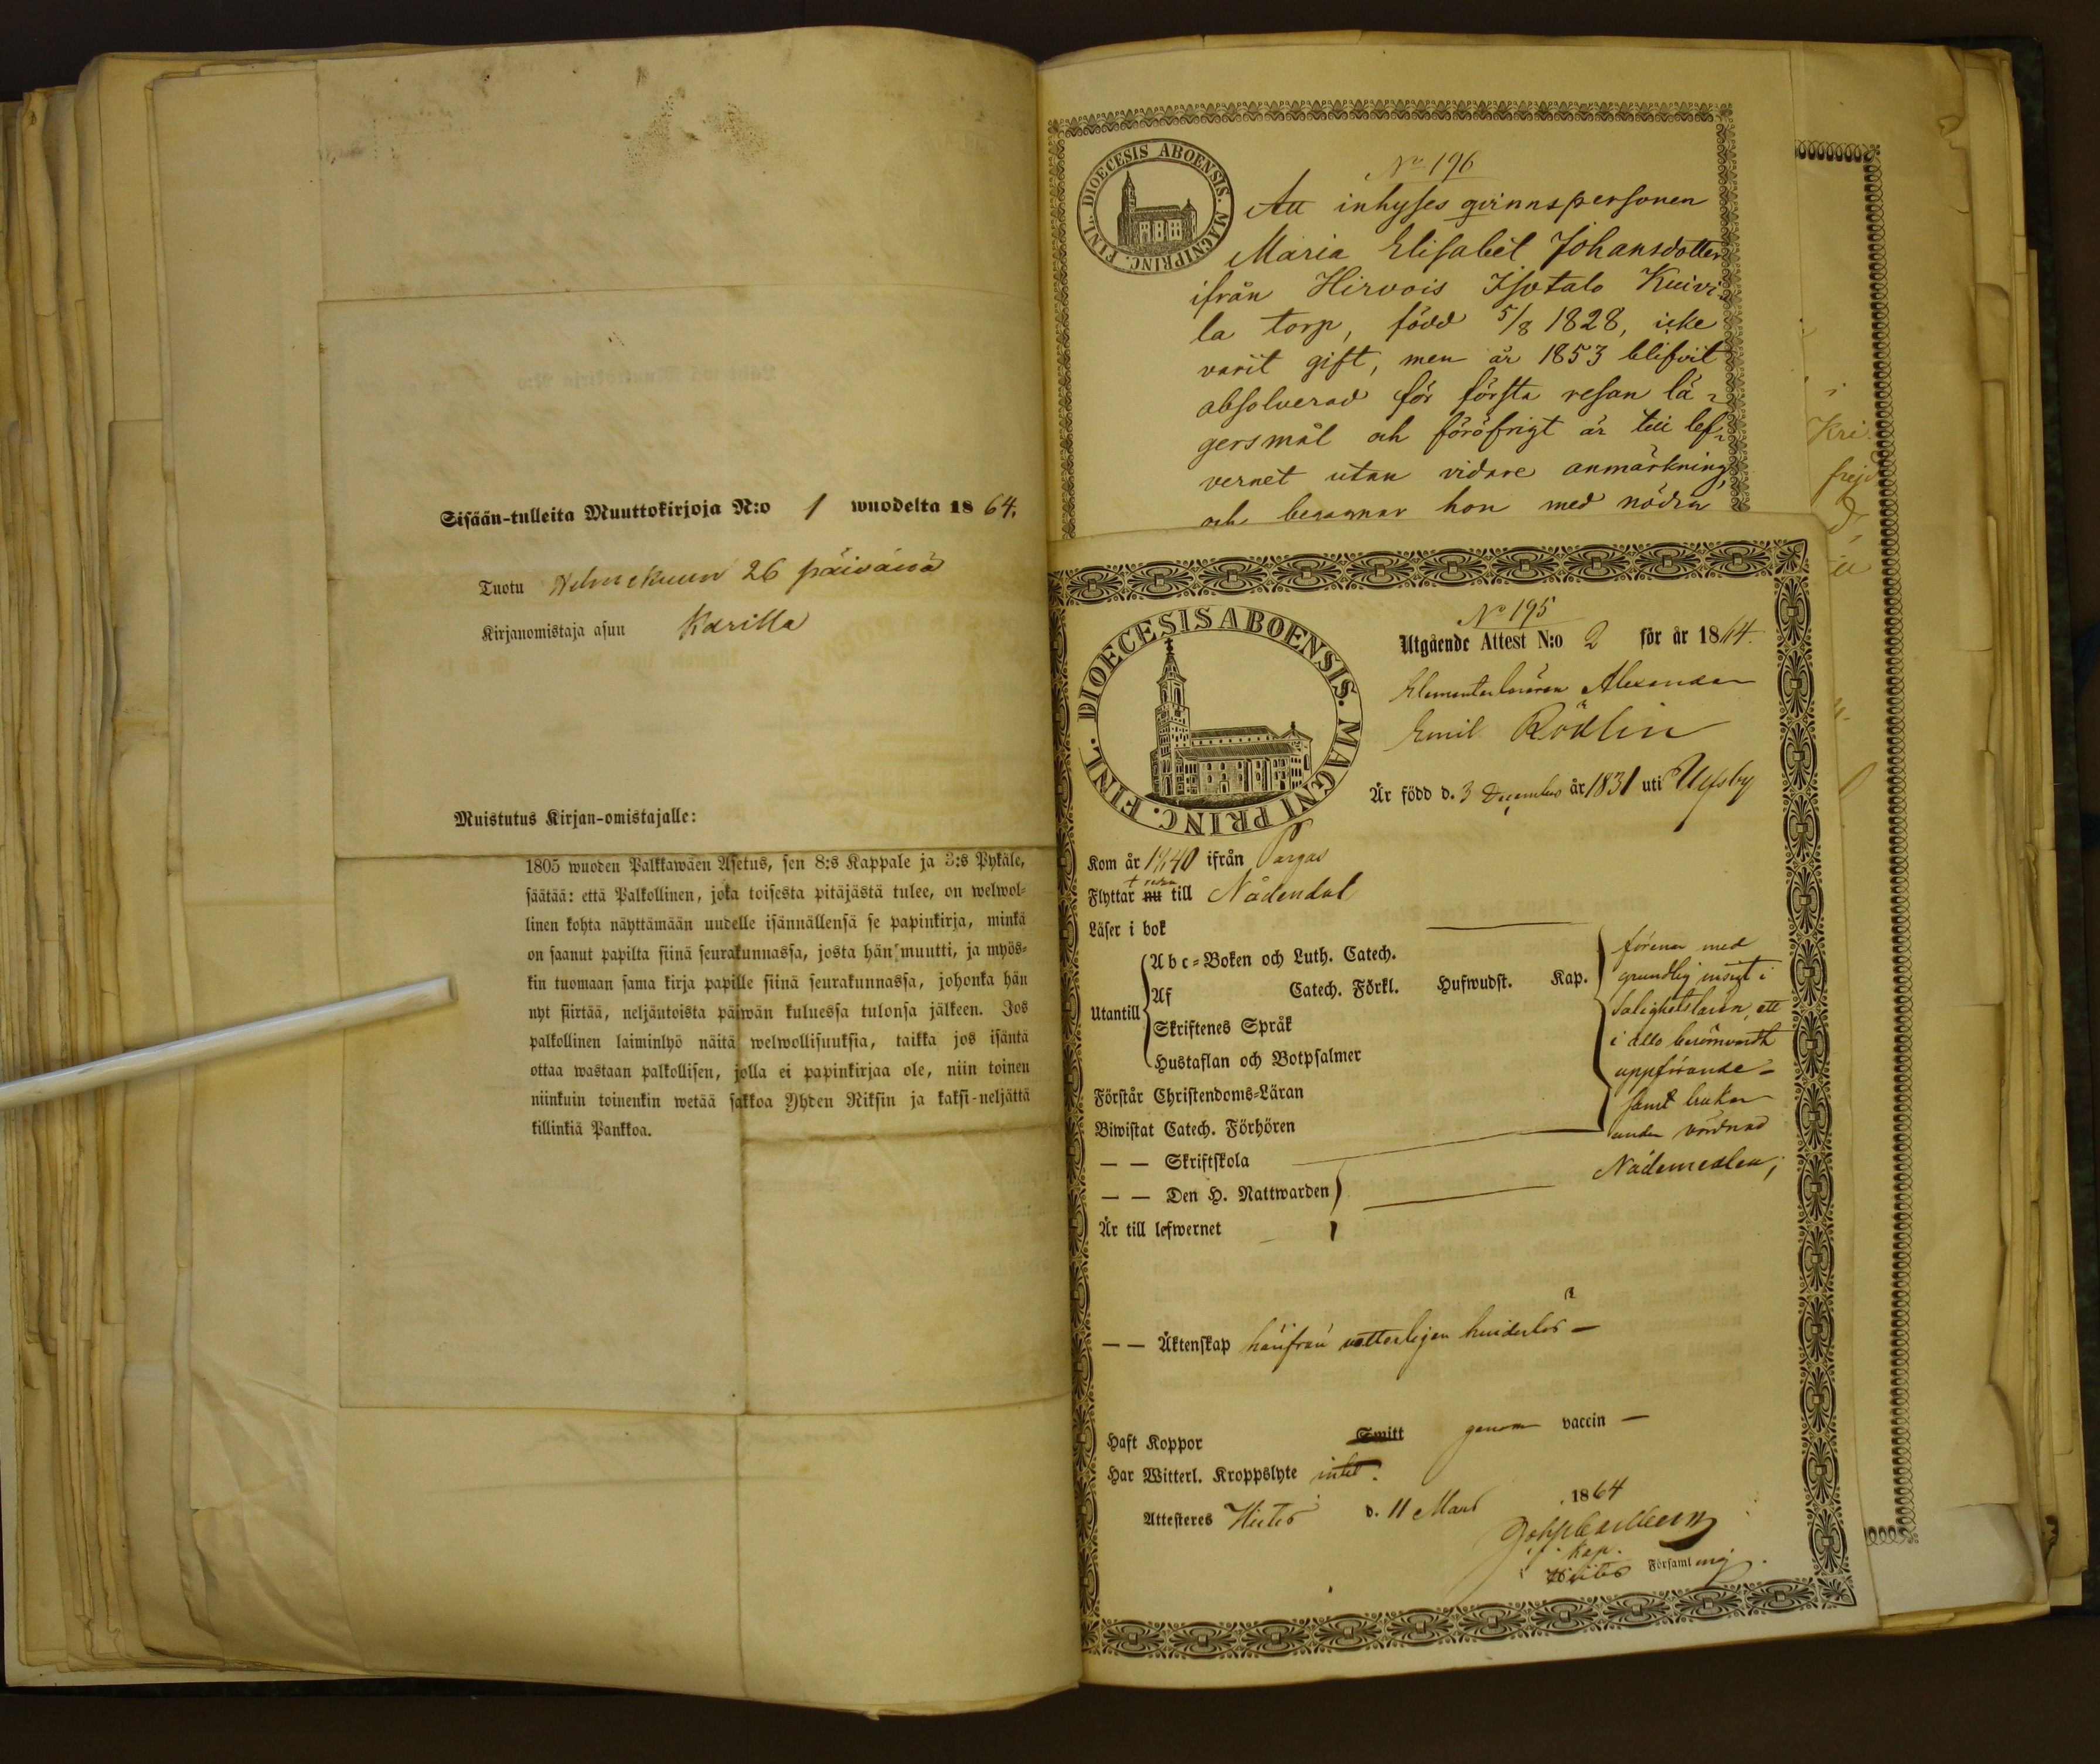 Sisään-tulleita Muuttokirjoja N:o 1 wuodelta 1864.
Tuotu Helmekuun 26 päivänä
Kirjanomistaja asuu Karilla
Muistutus Kirjan-omistajalle:
1805 wuoden Palkkawäen Asetus, sen 8:s Kappale ja 3:s Pykäle,
säätää: että Palkollinen, joka toisesta pitäjästä tulee, on welwol-
linen kohta näyttämään uudelle isännällensä se papinkirja, minkä
on saanut papilta siinä seurakunnassa, josta hän muutti, ja myös-
kin tuomaan sama kirja papille siinä seurakunnassa, johonka hän
nyt siirtää, neljäntoista päiwän kuluessa tulonsa jälkeen. Jos
palkollinen laiminlyö näitä welwollisuuksia, taikka jos isäntä
ottaa wastaan palkollisen, jolla ei papinkirjaa ole, niin toinen
niinkuin toinenkin wetää sakkoa Yhden Riksin ja kaksi-neljättä
killinkiä Pankkoa.
FINL. DIOECESIS ABOENSIS. MAGNI PRINC.
No 196
Att inhyses qvinnspersonen
Maria Elisabet Johansdotter
ifrån Hirvois Isotalo Kuivi-
la torp, född 5/8 1828, icke
varit gift, men år 1853 blifvit
absolverad för första resan lä-
gersmål och föröfrigt är till lef-
vernet utan vidare anmärkning,
och begagnar hon med nödra
Kri
frejd
FINL. DIOECESIS ABOENSIS. MAGNI PRINC.
No 195
Utgående Attest N:o 2 för år 1864
Elementarläraren Alexander
Emil Rödlin
Är född d. 3 December år 1831 uti Ulfsby
Kom år 1840 ifrån Pargas
Flyttar nu till Nådendal
Läser i bok
Utantill
Abc-Boken och Luth. Catech.
Af Catech. Förkl. Hufwudst. Kap.
Skriftenes Språk
Hustaflan och Botpsalmer
Förstår Christendoms-Läran
Biwistat Catech. Förhören
— — Skriftskola
— — Den H. Nattwarden
förenar med
grundlig insigt i
Salighetsläran ett
i allo berömvärdt
uppförande -
samt brukar
under vördnad
Nådemedlen;
Är till lefwernet
— — Äktenskap härifrån vetterligen hinderlös —
Haft Koppor Smitt genom vaccin —
Har Witterl. Kroppslyte intet.
Attesteres Hiitis d. 11 Mars 1864
Kap.
Hiitis Församling.